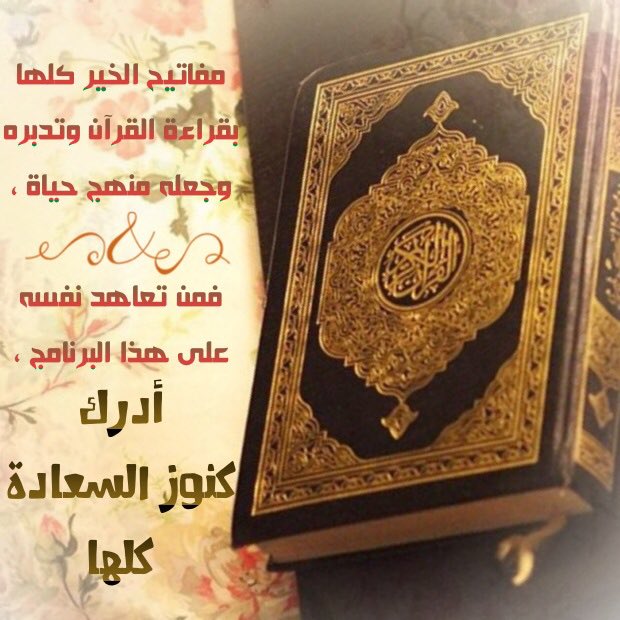 مفاتيح الخير كلها
بقراءة القرآن وتدبره
وجعله منهج حياة ،
فمن تعاهد نفسه
على هذا البرنامج ،
أدرك
كنوز السعادة
كلها
القرآن الكريم